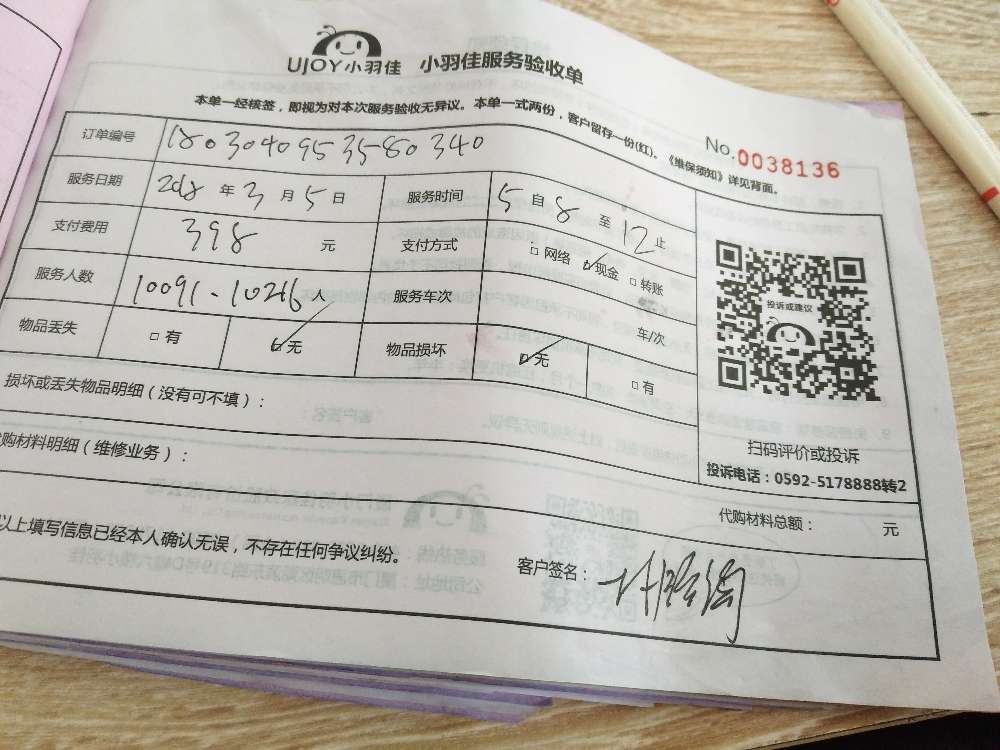 UJOY小羽佳 小羽佳服务验收单
本单一经核签，即视为对本次服务验收无异议。本单一式两份，客户留存一份(红)。《维保须知》详见背面。
No.0038136
订单编号 1803040953580340
服务日期 2018 年 3 月 5 日 服务时间 5 自 8 至 12 止
支付费用 398 元 支付方式 □ 网络 ☑ 现金 □ 转账
服务人数 10091-10266 人 服务车次 车/次
物品丢失 □ 有 ☑ 无 物品损坏 ☑ 无 □ 有
投诉或建议
扫码评价或投诉
投诉电话：0592-5178888转2
损坏或丢失物品明细（没有可不填）：
购材料明细（维修业务）：
代购材料总额： 元
以上填写信息已经本人确认无误，不存在任何争议纠纷。
客户签名：